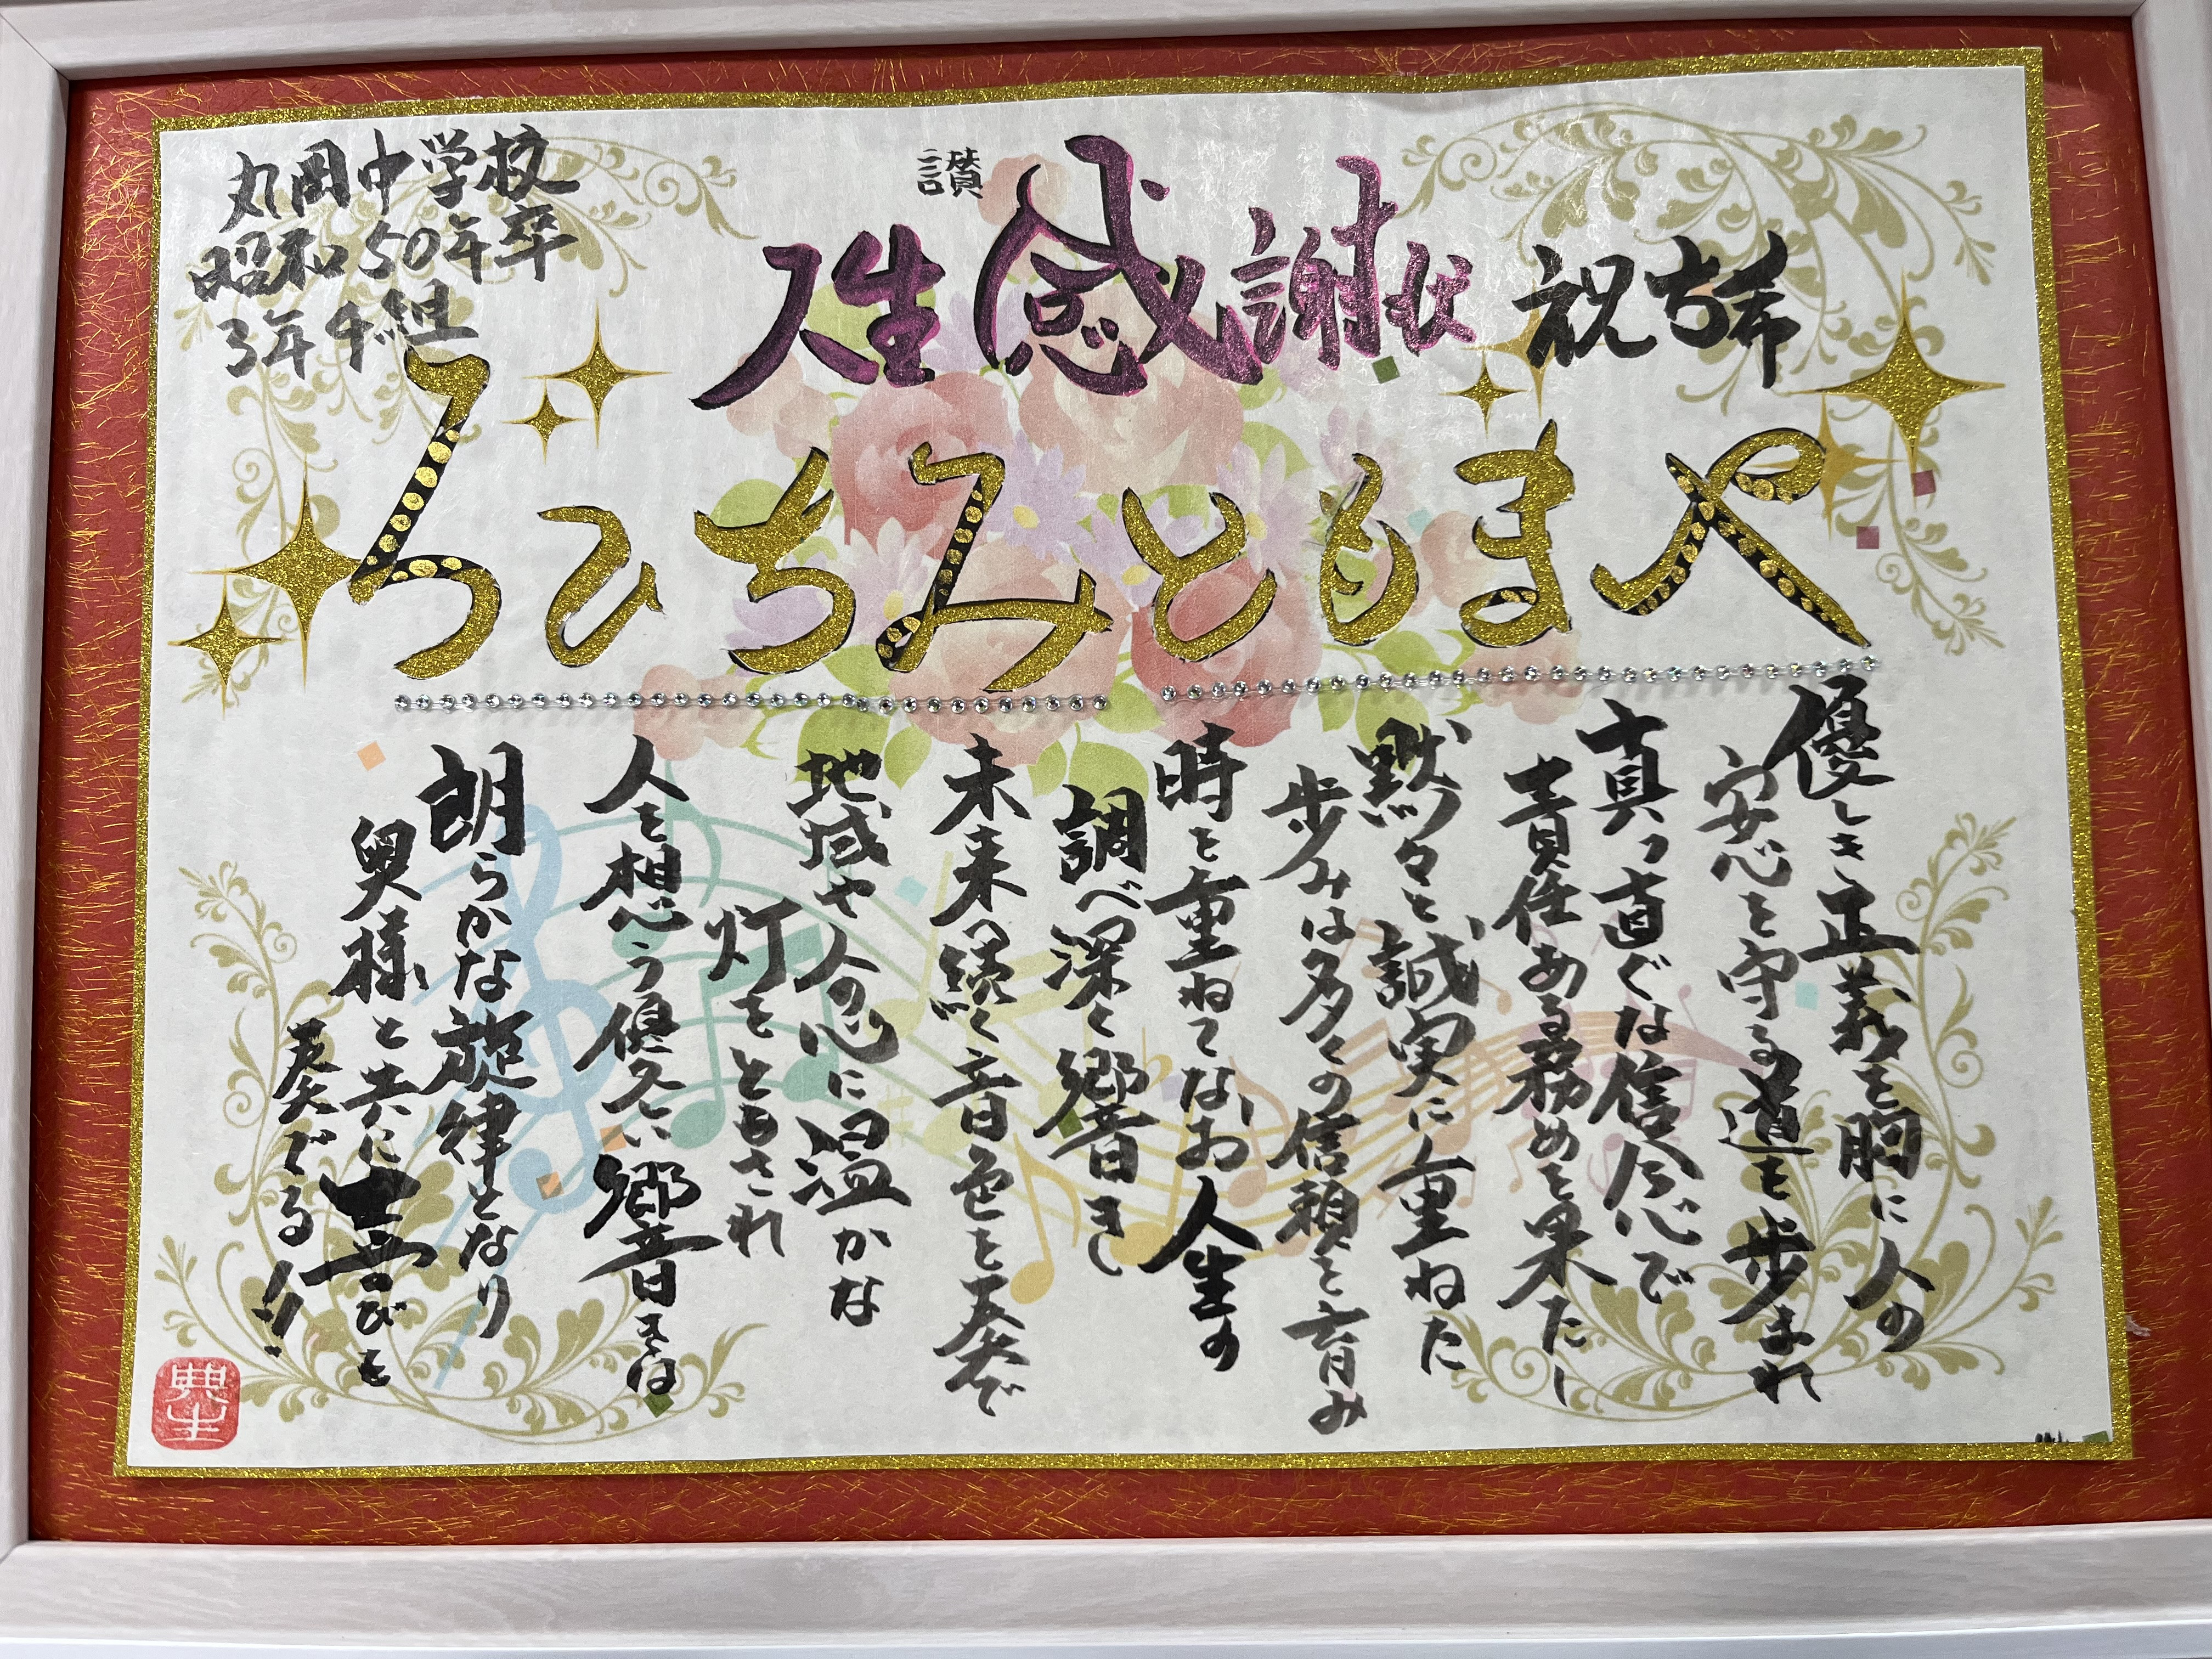 祝古希
讃
人生感謝状
丸岡中学校
昭和50年卒
3年4組
やまもとみちひろ
優しき正義を胸に人の
安心を守る道を歩まれ
真っ直ぐな信念で
責任ある務めを果たし
黙々と誠実に重ねた
歩みは多くの信頼を育み
時を重ねてなお人生の
調べ深く響きし
未来へ続く音色を奏で
地域や人の心に温かな
灯をともされ
人を想う響きは
朗らかな旋律となり
奥様と共に喜びを
奏でる!!